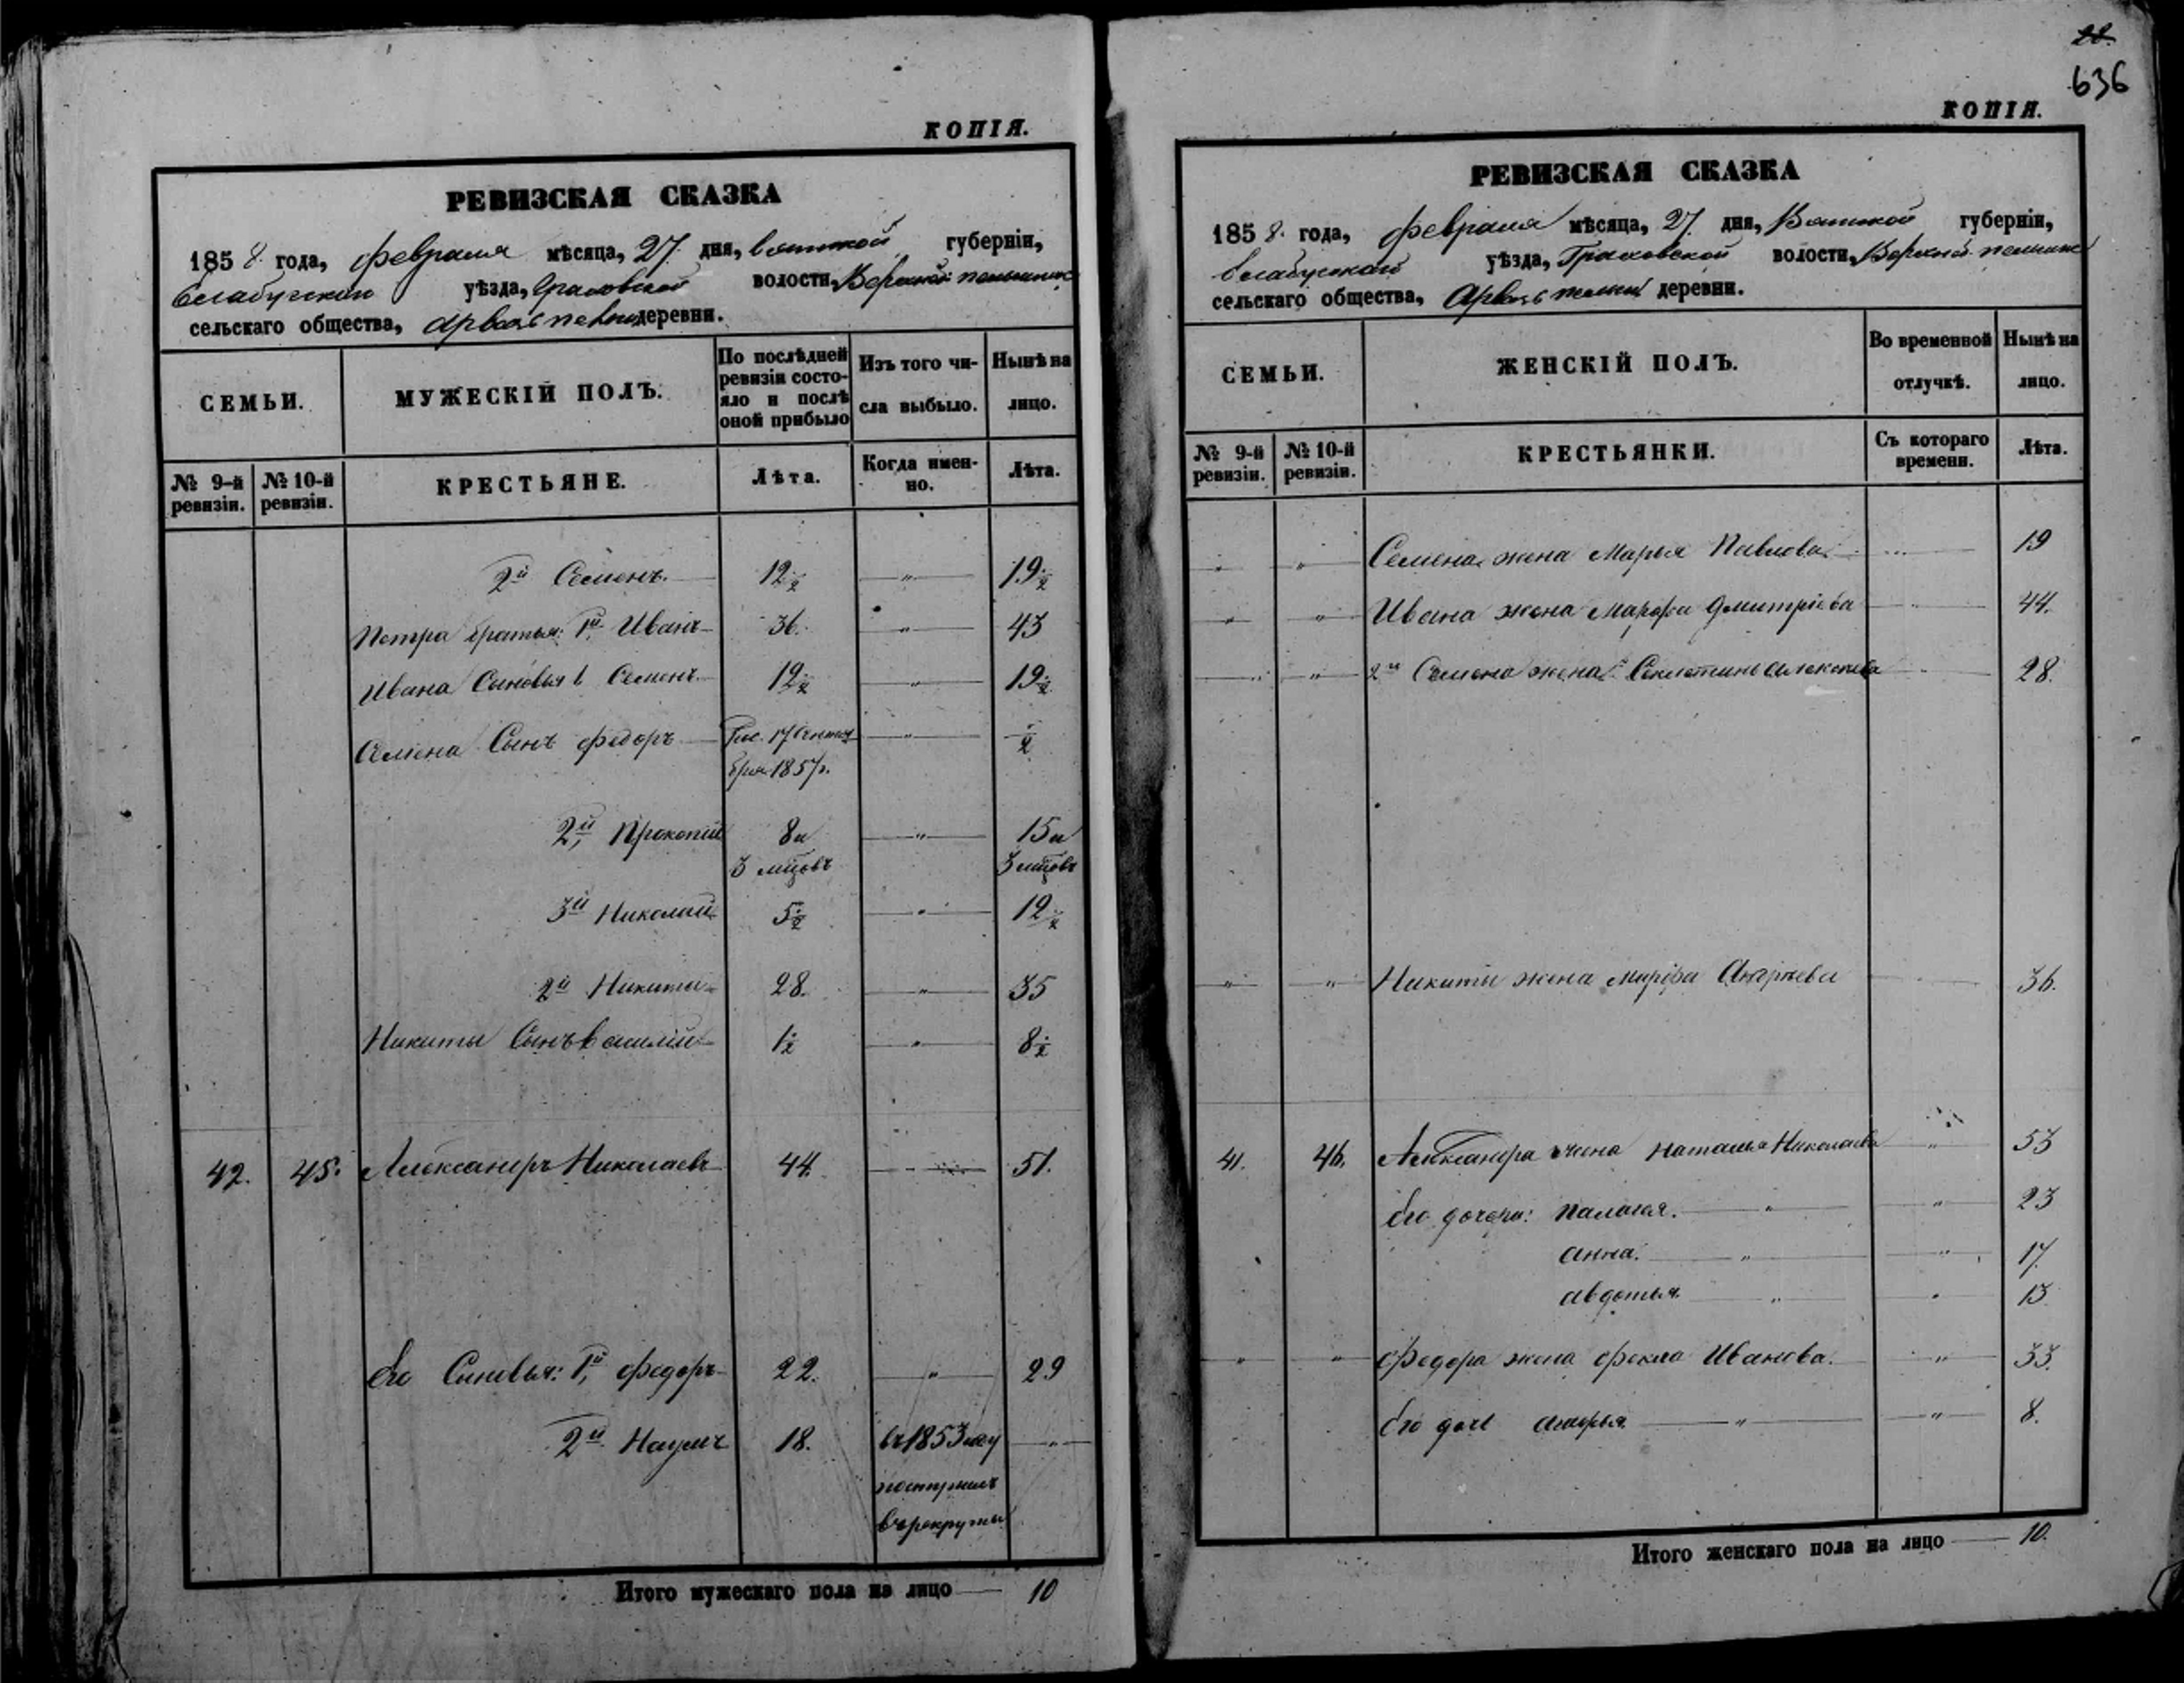 КОПІЯ.
РЕВИЗСКАЯ СКАЗКА
1858 года, февраля мѣсяца, 27 дня, Вятской губерніи,
Елабугскаго уѣзда, Граховской волости,
сельскаго общества, деревни.
СЕМЬИ.
МУЖЕСКІЙ ПОЛЪ.
По послѣдней ревизіи состояло и послѣ оной прибыло
Изъ того числа выбыло.
Нынѣ на лицо.
№ 9-й ревизіи.
№ 10-й ревизіи.
КРЕСТЬЯНЕ.
Лѣта.
Когда именно.
Лѣта.
2й Семенъ. 12½ " 19½
Петра братья: 1й Иванъ 36. " 43
Ивана Сыновья 1 Семенъ 12½ " 19½
Семена Сынъ Федоръ Рож. 17 Сентя " ½
бря 1857г.
2й Прокопій 8 и " 15 и
3 мцовъ 3 мцовъ
3й Николай 5½ " 12½
2й Никита 28. " 35
Никиты Сынъ Василій 1½ " 8½
42. 45. Александръ Николаевъ 44. " 51.
Его Сыновья: 1й Федоръ 22. " 29
2й Наумъ 18. въ 1853 году "
поступилъ
въ рекруты
Итого мужескаго пола на лицо 10
22.
636
КОПІЯ.
РЕВИЗСКАЯ СКАЗКА
1858. года, февраля мѣсяца, 27 дня, Вятской губерніи,
Елабугскаго уѣзда, Граховской волости,
сельскаго общества, деревни.
СЕМЬИ.
ЖЕНСКІЙ ПОЛЪ.
Во временной отлучкѣ.
Нынѣ на лицо.
№ 9-й ревизіи.
№ 10-й ревизіи.
КРЕСТЬЯНКИ.
Съ котораго времени.
Лѣта.
" " Семена жена Марья Павлова " 19
" " Ивана жена Марфа Дмитріева " 44.
" " 2й Семена жена Алексѣева " 28.
" " Никиты жена Марфа Андреева 36.
41. 46. Александра жена Наталья Николаева " 53
Его дочери: Палагея. " " 23
Анна. " " 17
Авдотья. " " 13
" " Федора жена Фекла Иванова. " 33.
Его дочь " " 8.
Итого женскаго пола на лицо 10.